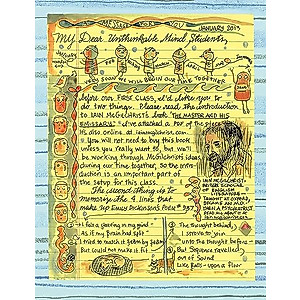 JANUARY 2013
My Dear Unthinkable Mind Students,
VERY SOON WE WILL BEGIN OUR TIME TOGETHER
Before our FIRST CLASS, I'd like you to
do two things. Please read the introduction
to IAIN McGILCHRIST'S book "THE MASTER AND HIS
EMISSARY." I've attached a PDF of the
It's also online at iainmcgilchrist.com.
You will not need to buy this book
unless you really want to, but we'll
be working through McGilchrist's ideas
during our time together, so the intro-
duction is an important part of
the setup for this class.
The second thing is to
MEMORIZE the 8 lines that
make up EMILY DICKINSON'S POEM # 937
IAIN McGILCHRIST
FORMER SCHOLAR
OF ENGLISH
TAUGHT AT OXFORD,
BECAME AN M.D.
READ MORE ABOUT HIM AT
1 I felt a cleaving in my mind
As if my Brain had split
I tried to match it seam by seam
But could not make it fit
2 The thought behind,
I strove to join
unto the thought before
But Sequence ravelled
out of Sound
Like Balls - upon a Floor